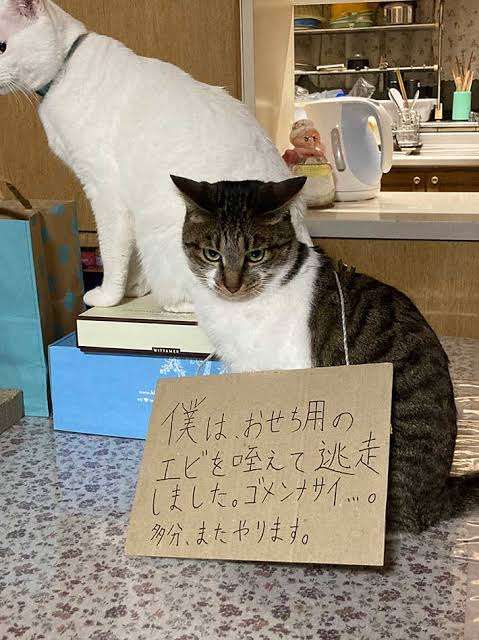 WITTAMER
僕は、おせち用の
エビを咥えて逃走
しました。ゴメンナサイ…。
多分、またやります。